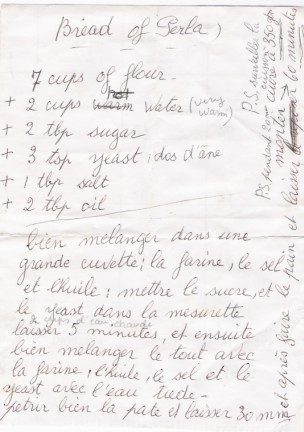 Bread of Perla)
7 cups of flour -
+ 2 cups hot water (very warm)
+ 2 tbp sugar
+ 3 tsp yeast : dos d'âne
+ 1 tbp salt
+ 2 tbp oil
bien melanger dans une
grande cuvette : la farine, le sel
et l'huile ; mettre le sucre, et
le yeast dans la mesurette
+ 2 cups eau chaude
laisser 5 minutes, et ensuite
bien melanger le tout avec
la farine, l'huile, le sel et le
yeast avec l'eau tiede -
petrir bien la pate et laisser 30 mm
et après faire le pain et laisser 60 minutes
monter
cuire à 350
P.S. surveiller la cuisson
P.S. pendant 20